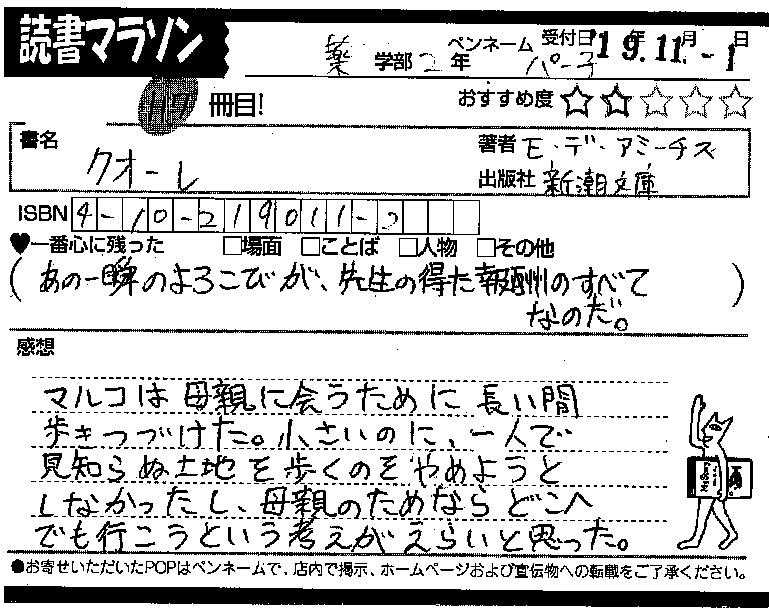 読書マラソン
薬 学部 2 年 ペンネーム パー子 受付日 '19年11月-1日
冊目! おすすめ度 ☆☆☆☆☆
書名 クオーレ
著者 E・デ・アミーチス
出版社 新潮文庫
ISBN 4-10-219011-2
♥一番心に残った □場面 □ことば □人物 □その他
(あの一瞬のよろこびが、先生の得た報酬のすべて
なのだ。)
感想
マルコは母親に会うために長い間
歩きつづけた。小さいのに、一人で
見知らぬ土地を歩くのをやめようと
しなかったし、母親のためならどこへ
でも行こうという考えがえらいと思った。
●お寄せいただいたPOPはペンネームで、店内で掲示、ホームページおよび宣伝物への転載をご了承ください。